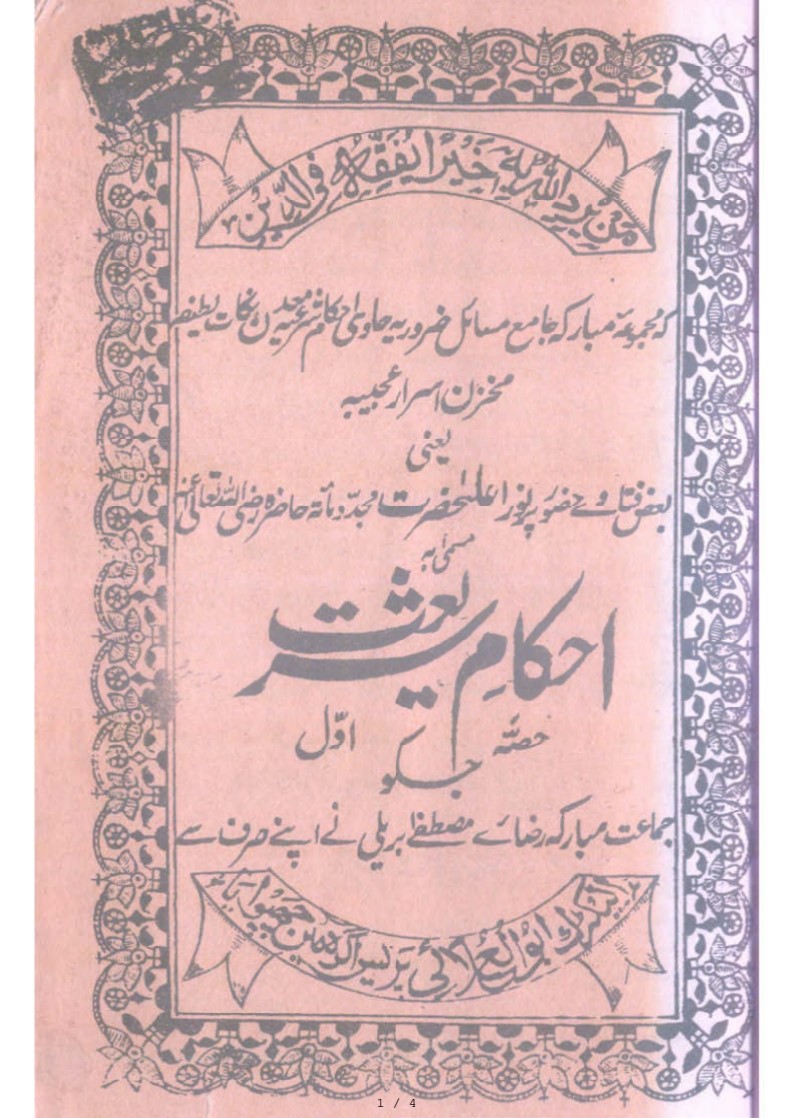 مَنْ يُّرِدِ اللّٰهُ بِهٖ خَيْرًا يُفَقِّهْهُ فِي الدِّيْنِ
کہ مجموعۂ مبارکہ جامع مسائل ضروریہ حاوی احکام شرعیہ معدن نکات لطیفہ
مخزن اسرار عجیبہ
یعنی
بعض فتاوے حضور پرنور اعلیٰحضرت مجدّد مأتہ حاضرہ رضی اللہ تعالیٰ عنہ
مسمّٰی بہ
احکامِ شریعت
حصّہ اوّل
جسکو
جماعت مبارکہ رضائے مصطفےٰ بریلی نے اپنے صرف سے
الیکٹرک ابوالعلائی پریس آگرہ میں چھپوایا
1 / 4